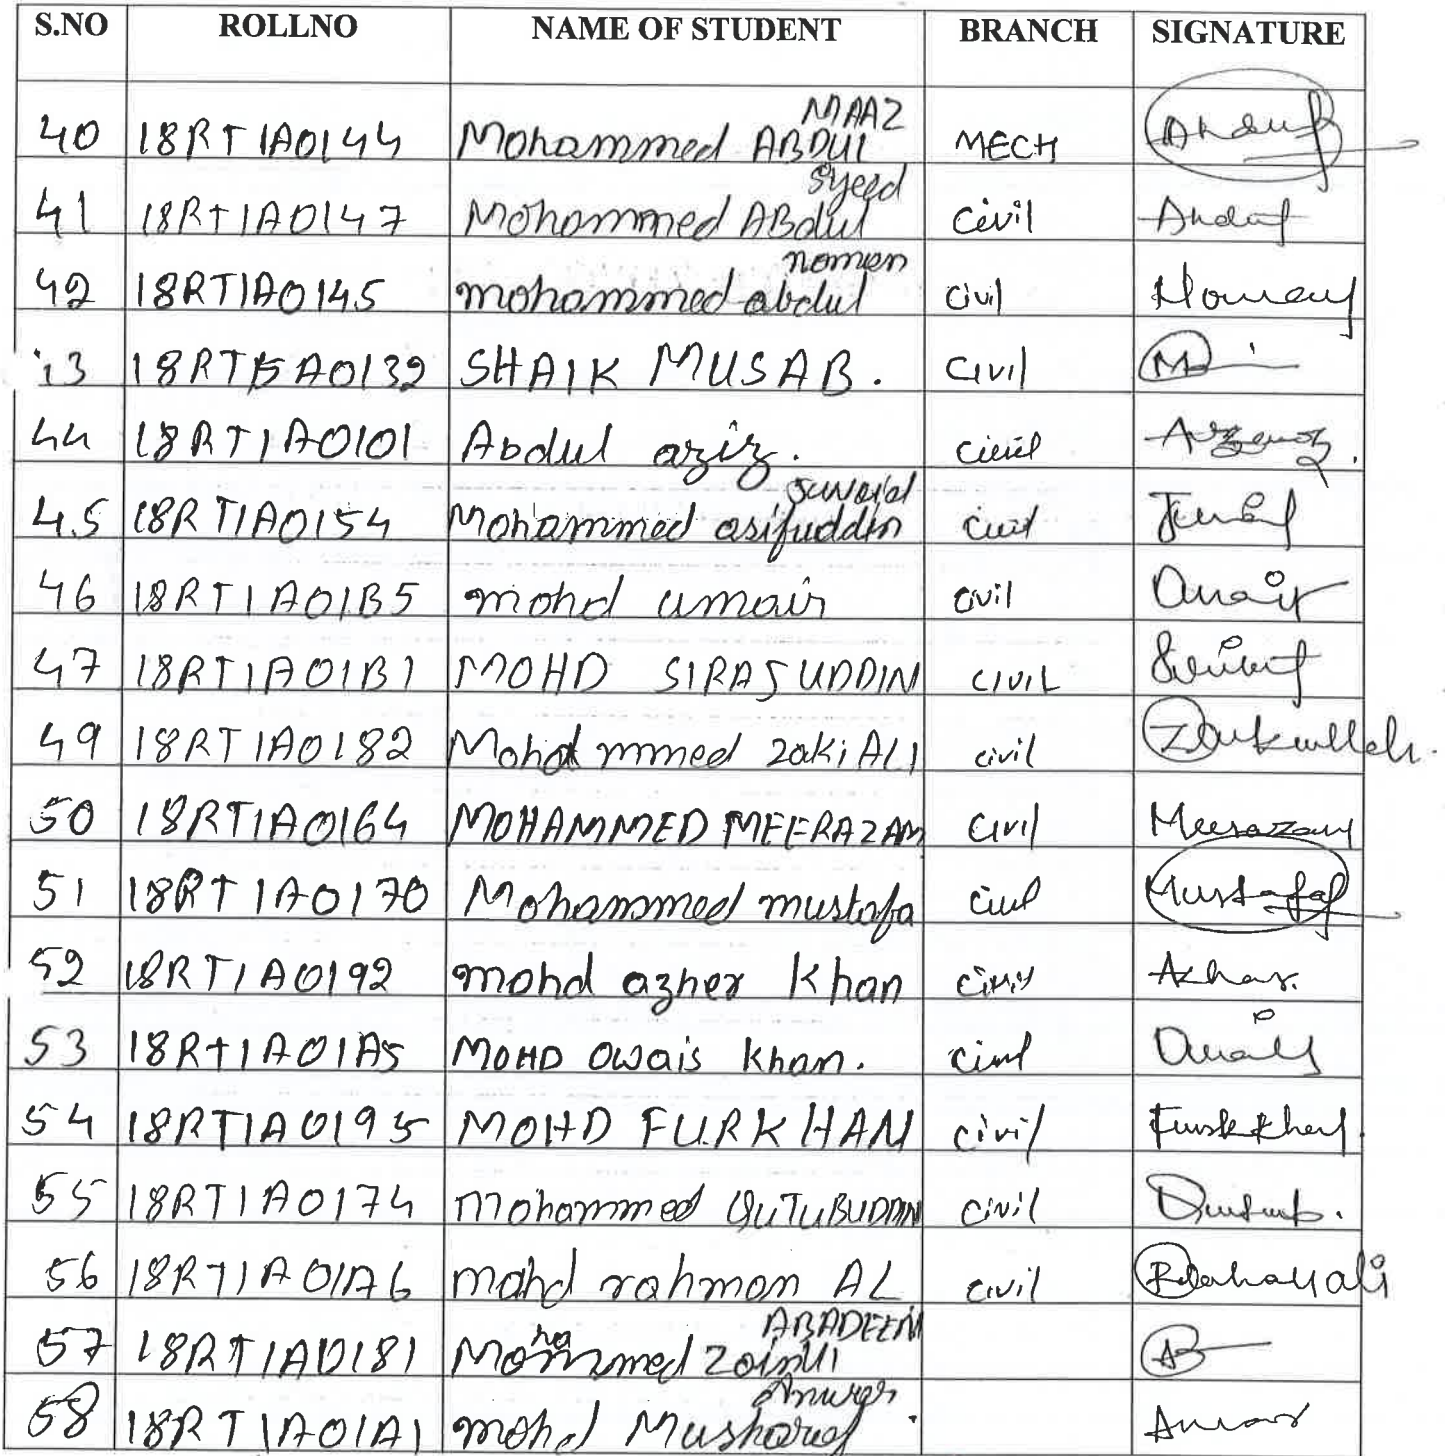 S.NO ROLLNO NAME OF STUDENT BRANCH SIGNATURE
MAAZ
40 18RT1A0144 Mohammed ABDUl MECH
Syeed
41 18RT1A0147 Mohammed ABdul Civil
nomen
42 18RT1A0145 mohammed abdul Civil Nomeny
13 18RT5A0132 SHAIK MUSAB. Civil M
44 18RT1A0101 Abdul aziz. civil
Junaid
45 18RT1A0154 Mohammed asifuddin civil
46 18RT1A01B5 mohd umair civil
47 18RT1A01B1 MOHD SIRAJUDDIN CIVIL
49 18RT1A0182 Mohammmed zaki ALI civil
50 18RT1A0164 MOHAMMED MEERAZAM Civil Meerazam
51 18RT1A0170 Mohammed mustafa civil Mustafa
52 18RT1A0192 mohd azher Khan civil Azhar.
53 18R+1A01A5 MOHD Owais Khan. civil
54 18RT1A0195 MOHD FURKHAN civil
55 18RT1A0174 Mohammed QUTUBUDDIN civil
56 18RT1A01A6 mohd rahman AL civil
ABADEEN
57 18RT1A0181 Mohammed Zainul
Anwer
58 18RT1A01A1 mohd Musharaf